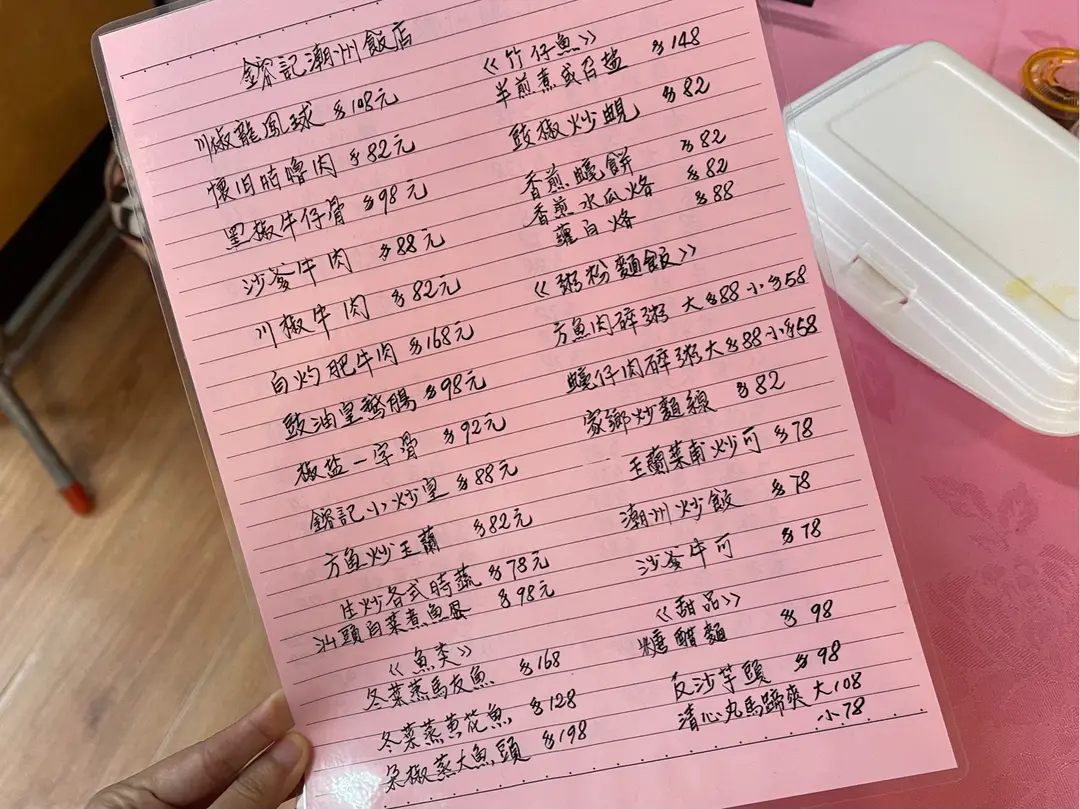 鎔記潮州飯店
川椒龍鳳球 $108元
懷旧咕嚕肉 $82元
黑椒牛仔骨 $98元
沙爹牛肉 $88元
川椒牛肉 $82元
白灼肥牛肉 $168元
豉油皇鵝腸 $98元
椒盐一字骨 $92元
鎔記小炒皇 $88元
方魚炒玉蘭 $82元
生炒各式時蔬 $78元
汕頭白菜煮魚 $98元
《魚类》
冬菜蒸馬友魚 $168
冬菜蒸黄花魚 $128
朶椒蒸大魚頭 $198
《竹仔魚》
半煎煮或百盐 $148
豉椒炒蜆 $82
香煎蠔餅 $82
香煎水瓜烙 $82
蘿白烙 $88
《粥粉麵飯》
方魚肉碎粥 大$88 小$58
蠔仔肉碎粥 大$88 小$58
家鄉炒麵線 $82
玉蘭菜甫炒可 $78
潮州炒飯 $78
沙爹牛可 $78
《甜品》
糖醋麵 $98
反沙芋頭 $98
清心丸馬蹄爽 大108
小78